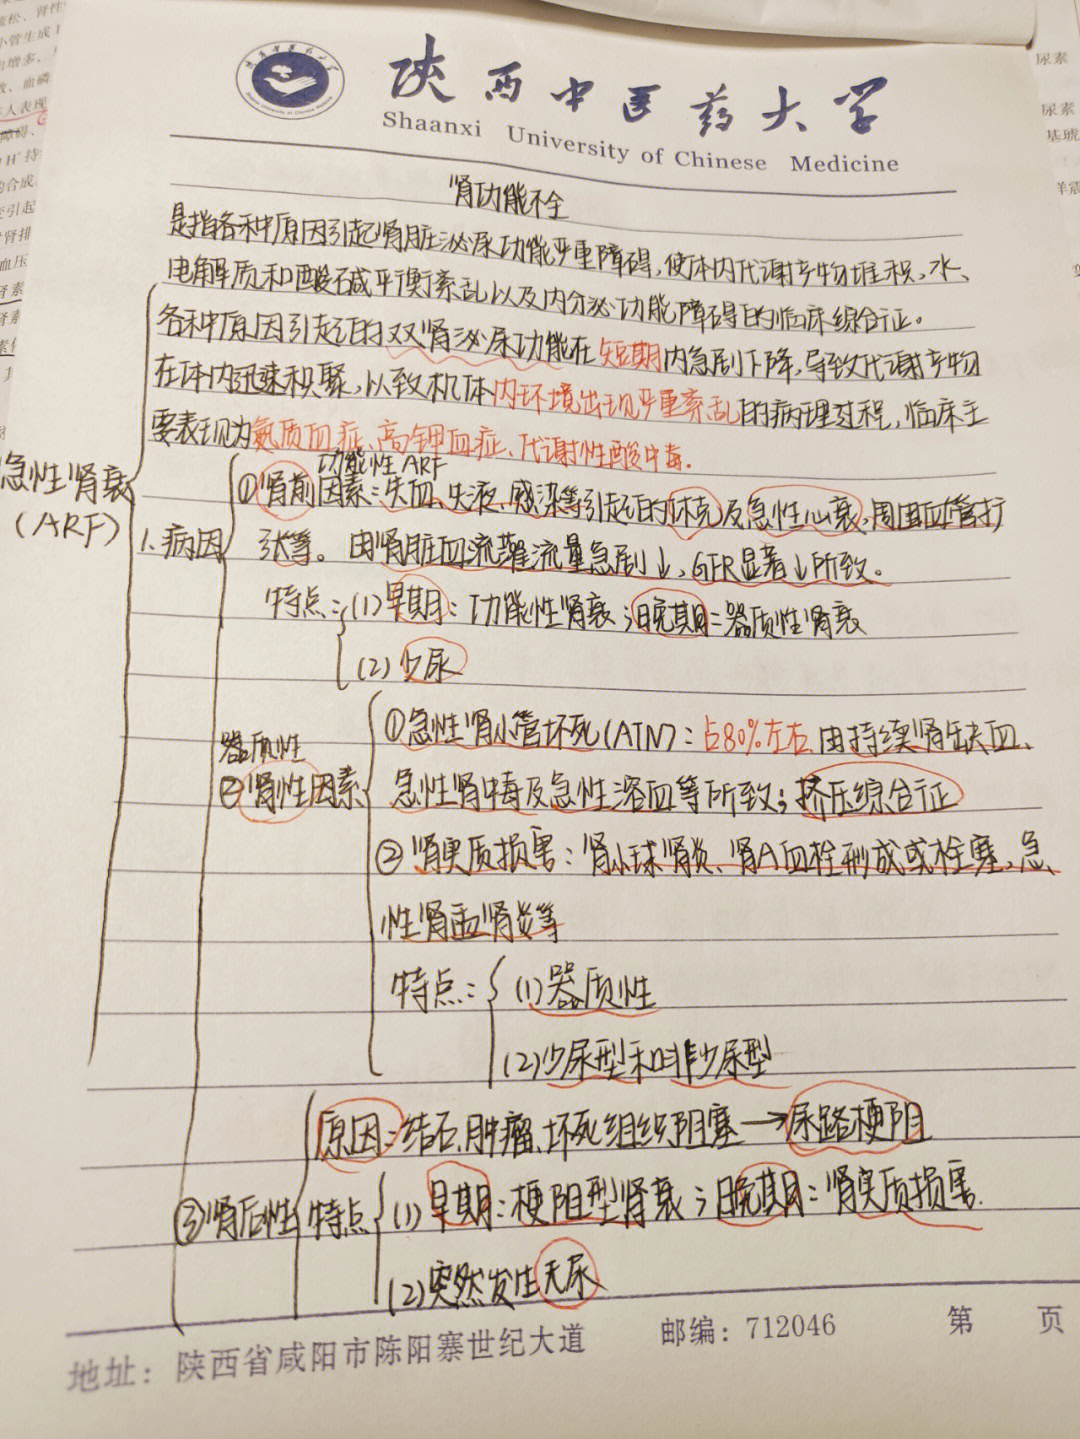 陕西中医药大学
Shaanxi University of Chinese Medicine
肾功能不全
是指各种原因引起肾脏泌尿功能严重障碍,使体内代谢产物堆积,水、
电解质和酸碱平衡紊乱以及内分泌功能障碍的临床综合征。
各种原因引起的双肾泌尿功能在短期内急剧下降,导致代谢产物
在体内迅速积聚,以致机体内环境出现严重紊乱的病理过程,临床主
要表现为氮质血症、高钾血症、代谢性酸中毒.
急性肾衰
(ARF)
1.病因
功能性ARF
①肾前因素:失血、失液、感染等引起的休克及急性心衰,周围血管扩
张等。由肾脏血流灌流量急剧↓,GFR显著↓所致。
特点:(1)早期:功能性肾衰;晚期:器质性肾衰
(2)少尿
器质性
②肾性因素
①急性肾小管坏死(ATN):占80%左右 由持续肾缺血、
急性肾中毒及急性溶血等所致;挤压综合征
②肾实质损害:肾小球肾炎、肾A血栓形成或栓塞、急
性肾盂肾炎等
特点:(1)器质性
(2)少尿型和非少尿型
原因:结石、肿瘤、坏死组织阻塞→尿路梗阻
③肾后性 特点 (1)早期:梗阻型肾衰;晚期:肾实质损害.
(2)突然发生无尿
地址:陕西省咸阳市陈阳寨世纪大道 邮编:712046 第 页